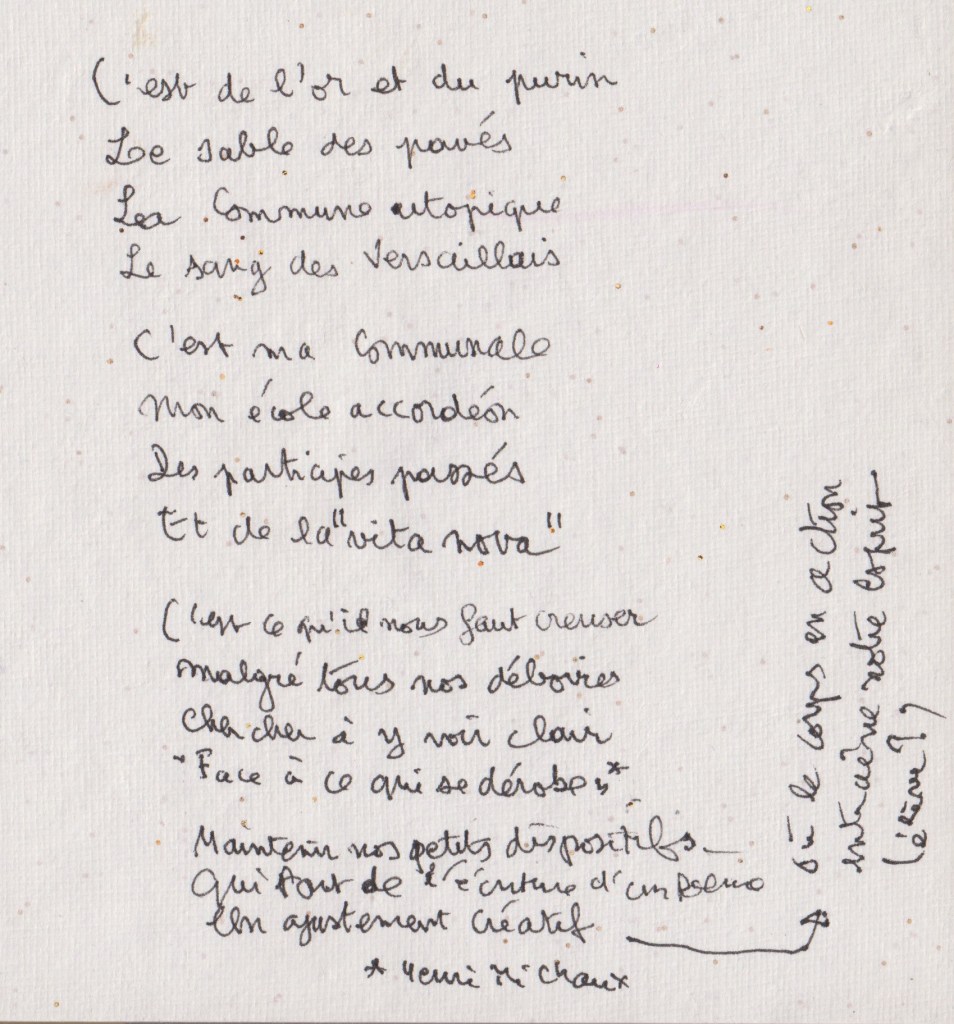 C'est de l'or et du purin
Le sable des pavés
La Commune utopique
Le sang des Versaillais
C'est ma Communale
Mon école accordéon
Des participes passés
Et de la "vita nova"
C'est ce qu'il nous faut creuser
Malgré tous nos déboires
Chercher à y voir clair
"Face à ce qui se dérobe"*
Maintenir nos petits dispositifs
Qui font de l'écriture d'un Poème
Un ajustement créatif
où le corps en action
entraîne notre esprit
* Henri Michaux